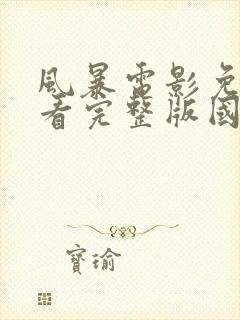 風暴電影免
看完整版國
寶瑜